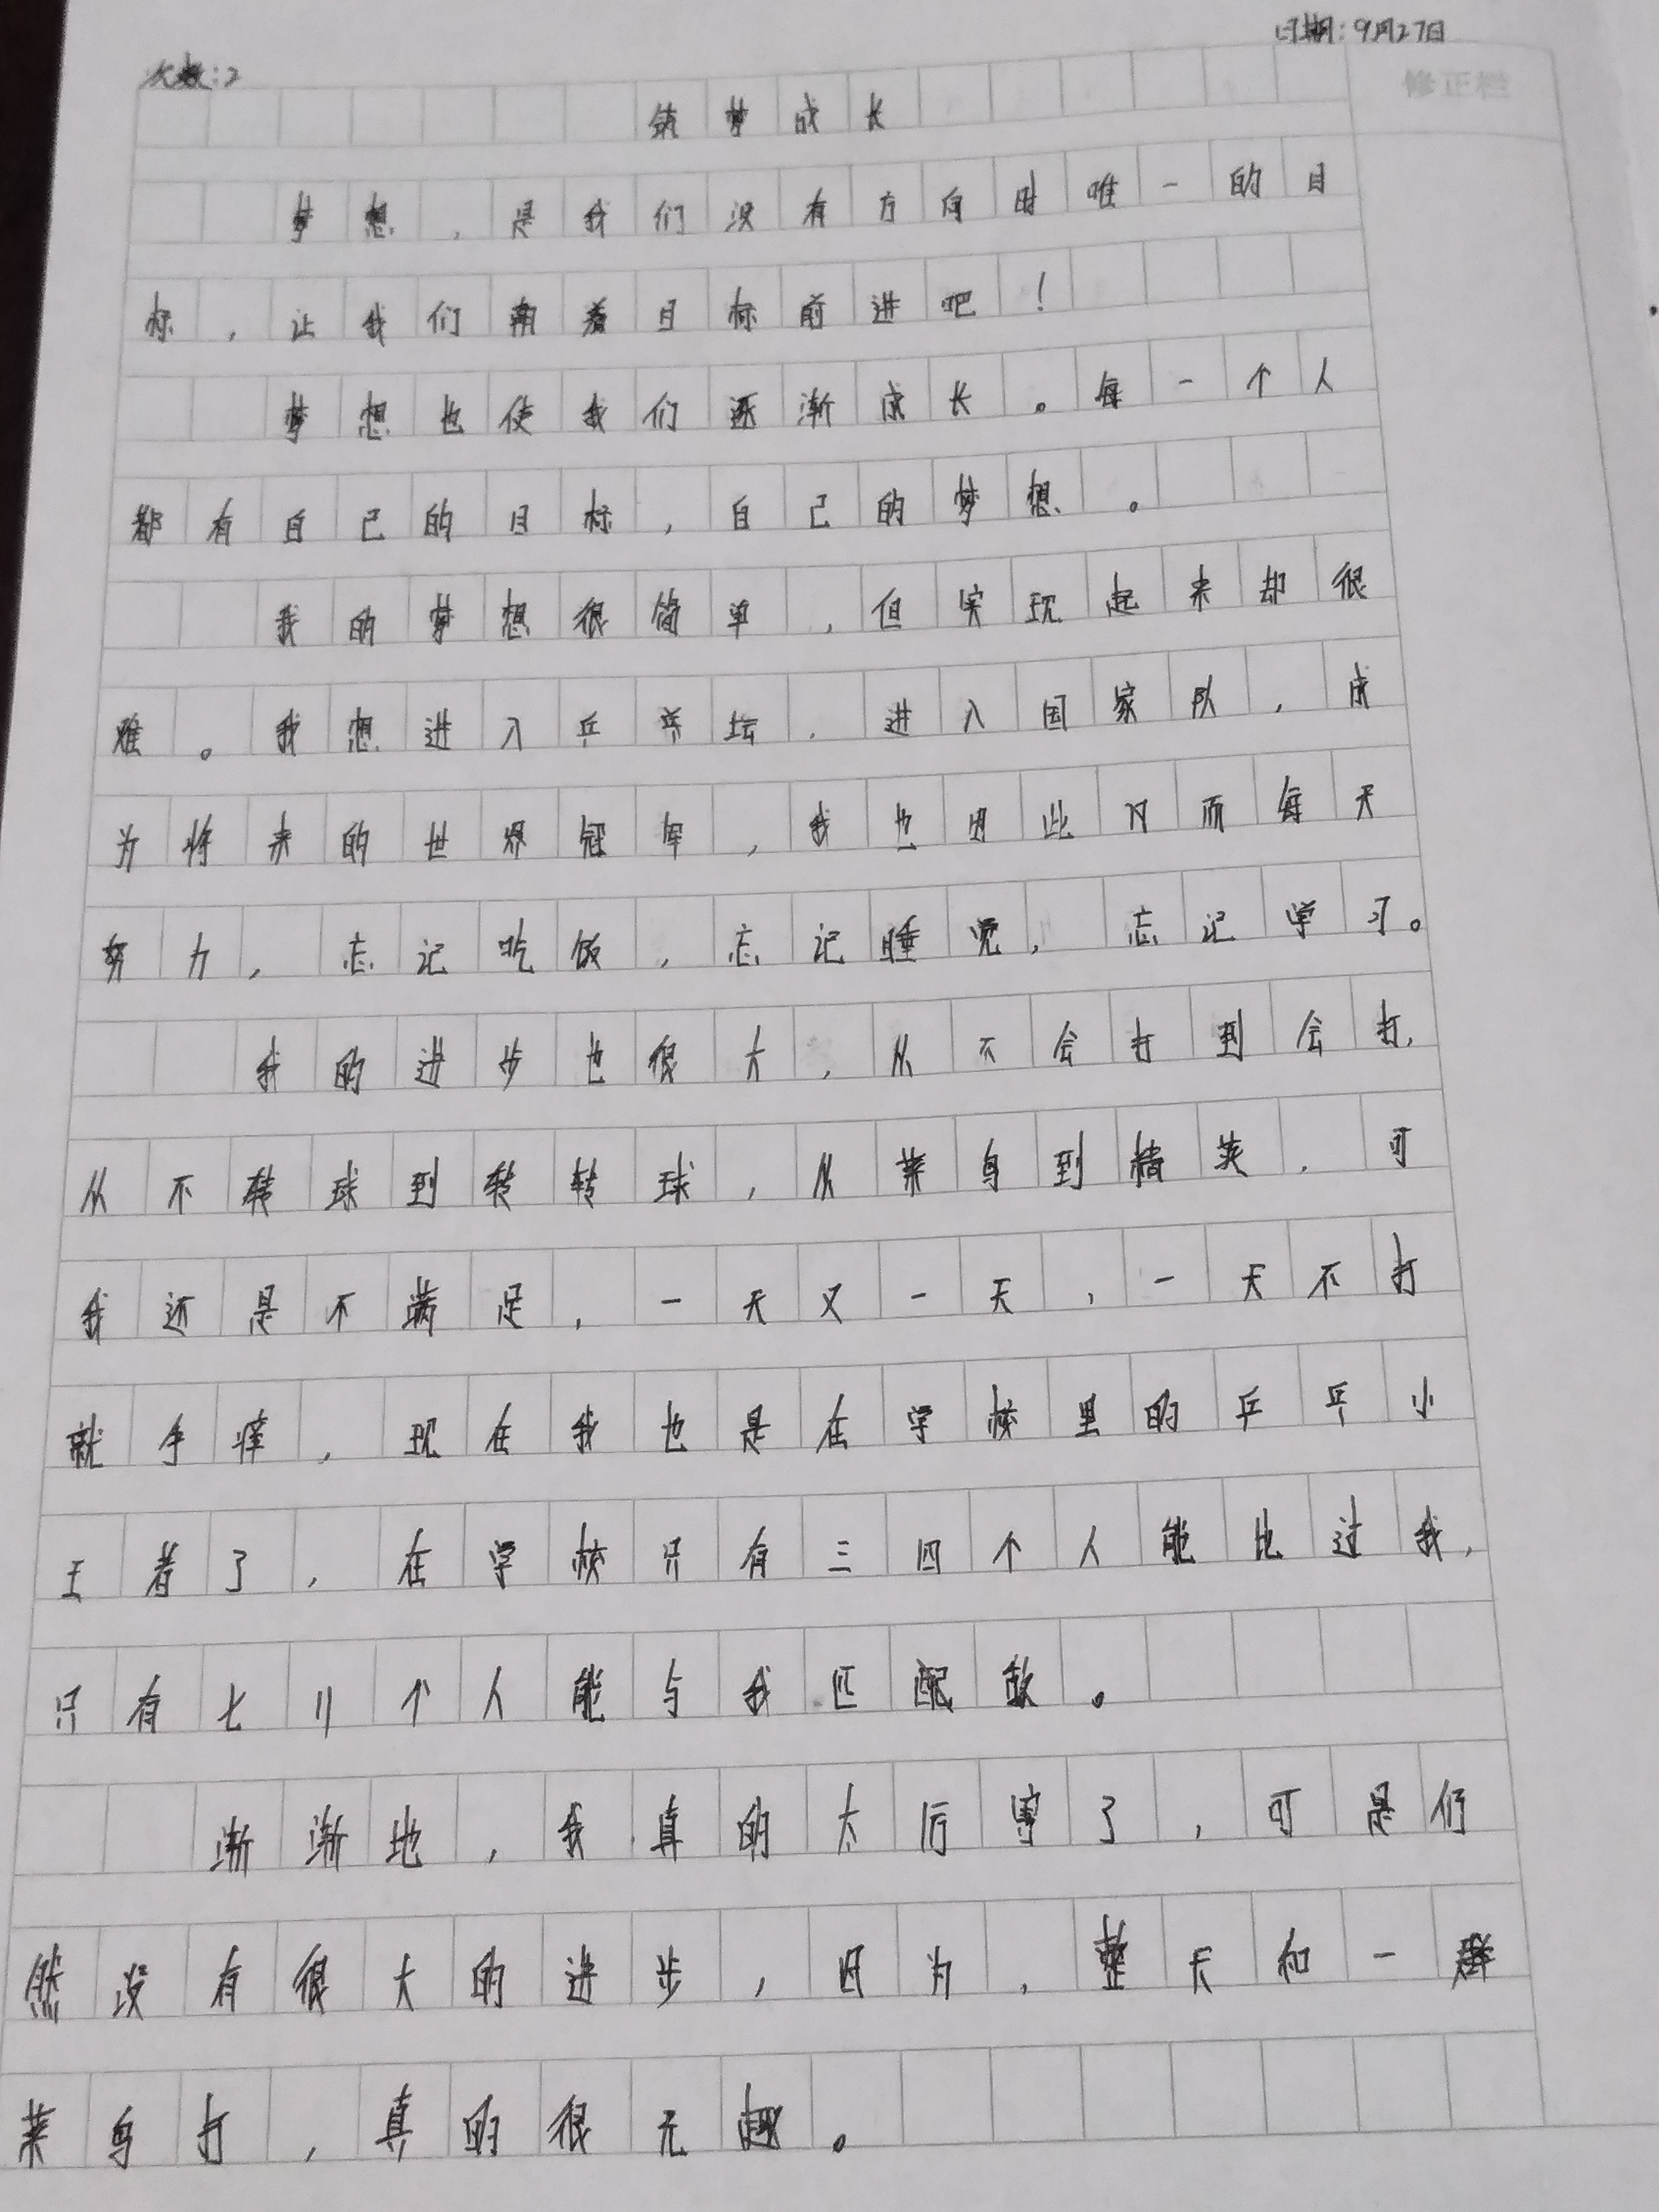 次数:2
日期:9月27日
修正栏
筑梦成长
梦想,是我们没有方向时唯一的目
标,让我们朝着目标前进吧!
梦想也使我们逐渐成长。每一个人
都有自己的目标,自己的梦想。
我的梦想很简单,但实现起来却很
难。我想进入乒乓坛,进入国家队,成
为将来的世界冠军,我也因此 而每天
努力,忘记吃饭,忘记睡觉,忘记学习。
我的进步也很大,从不会打到会打,
从不转球到转转球,从菜鸟到精英,可
我还是不满足,一天又一天,一天不打
就手痒,现在我也是在学校里的乒乓小
王者了,在学校只有三四个人能比过我,
只有七八个人能与我匹配敌。
渐渐地,我真的太厉害了,可是仍
然没有很大的进步,因为,整天和一群
菜鸟打,真的很无趣。